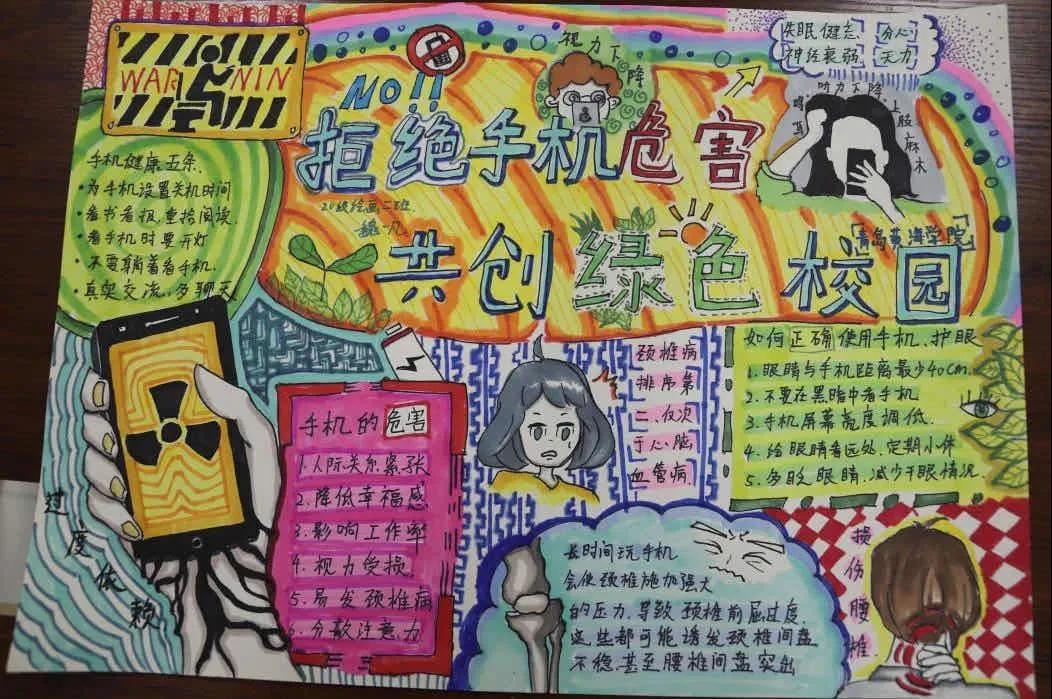 WAR NIN
NO!!
视力下降
失眠健忘 分心
神经衰弱 无力
听力下降
上肢麻木
拒绝手机危害
20级绘画二班
共创绿色校园
青岛黄海学院
手机健康五条
•为手机设置关机时间
•看书看报,重拾阅读
•看手机时要开灯
•不要躺着看手机.
•真实交流,多聊天
过度依赖
手机的危害
1.人际关系紧张
2.降低幸福感
3.影响工作率
4.视力受损
5.易发颈椎病
6.分散注意力
颈椎病
排序第
二、仅次
于心脑
血管病.
如何正确使用手机、护眼
1.眼睛与手机距离最少40cm.
2.不要在黑暗中看手机
3.手机屏幕亮度调低.
4.给眼睛看远处,定期小休
5.多眨眼睛.减少干眼情况
长时间玩手机
会使颈椎施加强大
的压力,导致颈椎前屈过度.
这些都可能诱发颈椎间盘
不稳,甚至腰椎间盘突出
损伤腰椎